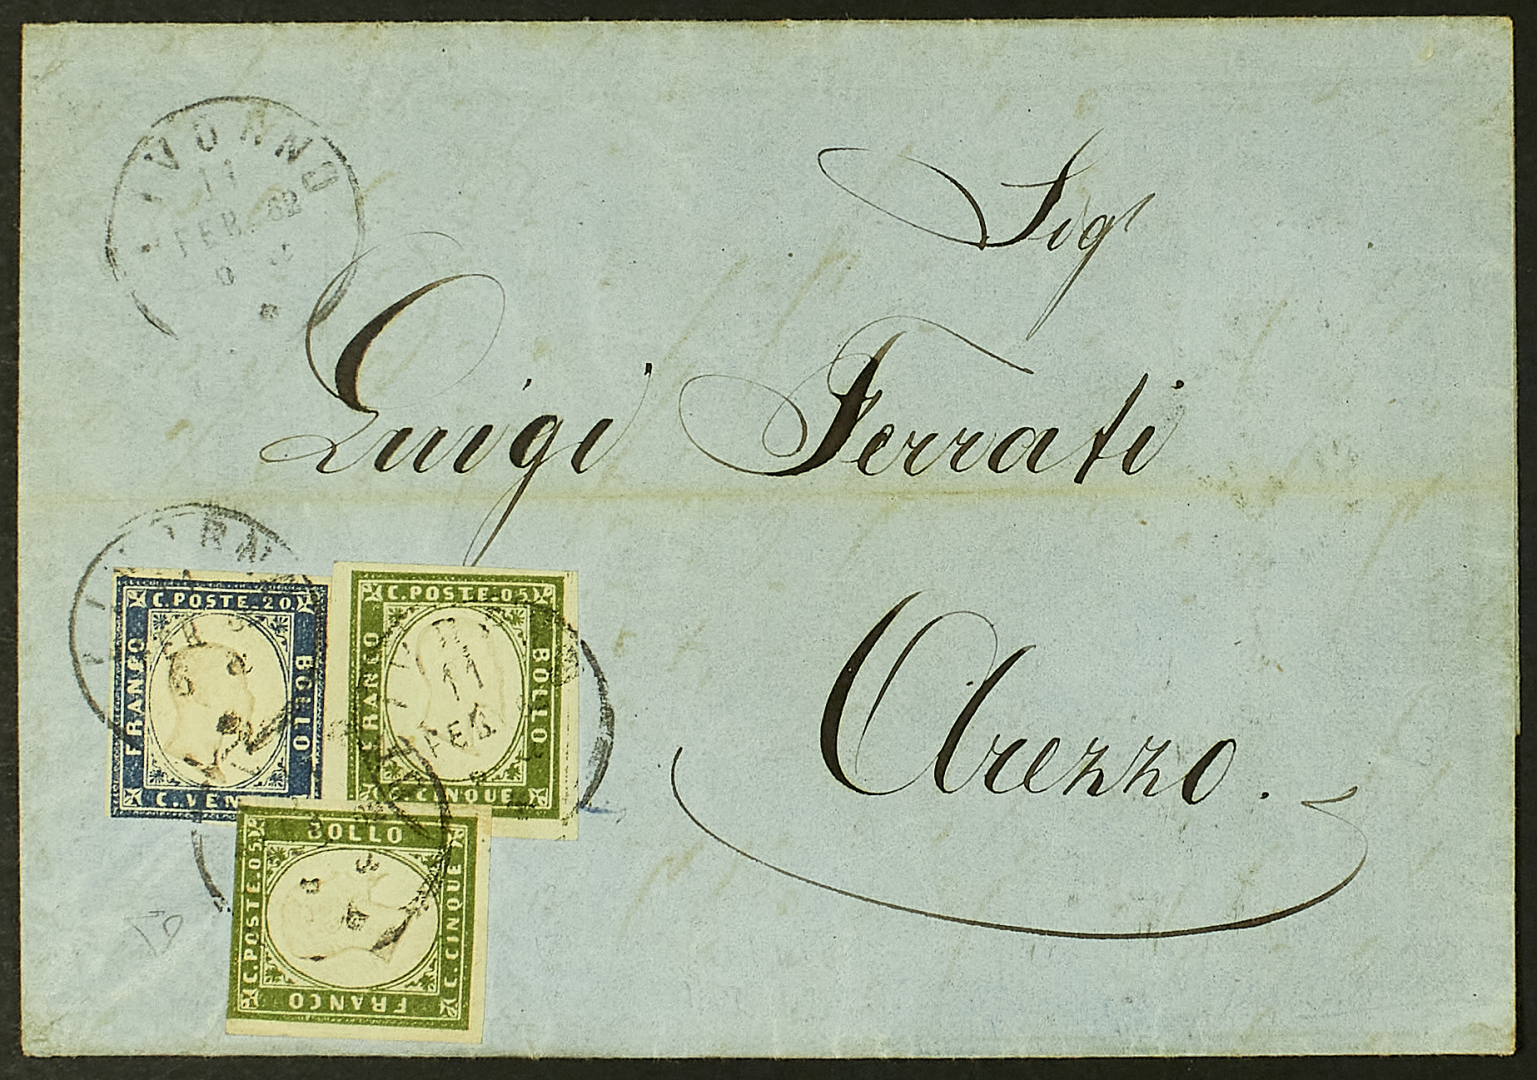 LIVORNO
11
FEB 62
Sig.
Luigi Ferrati
Arezzo.
LIVORNO
C. POSTE. 20
FRANCO
BOLLO
C. VEN
C. POSTE. 05
FRANCO
BOLLO
C. CINQUE
11
FEB
BOLLO
C. POSTE. 05
C. CINQUE
FRANCO